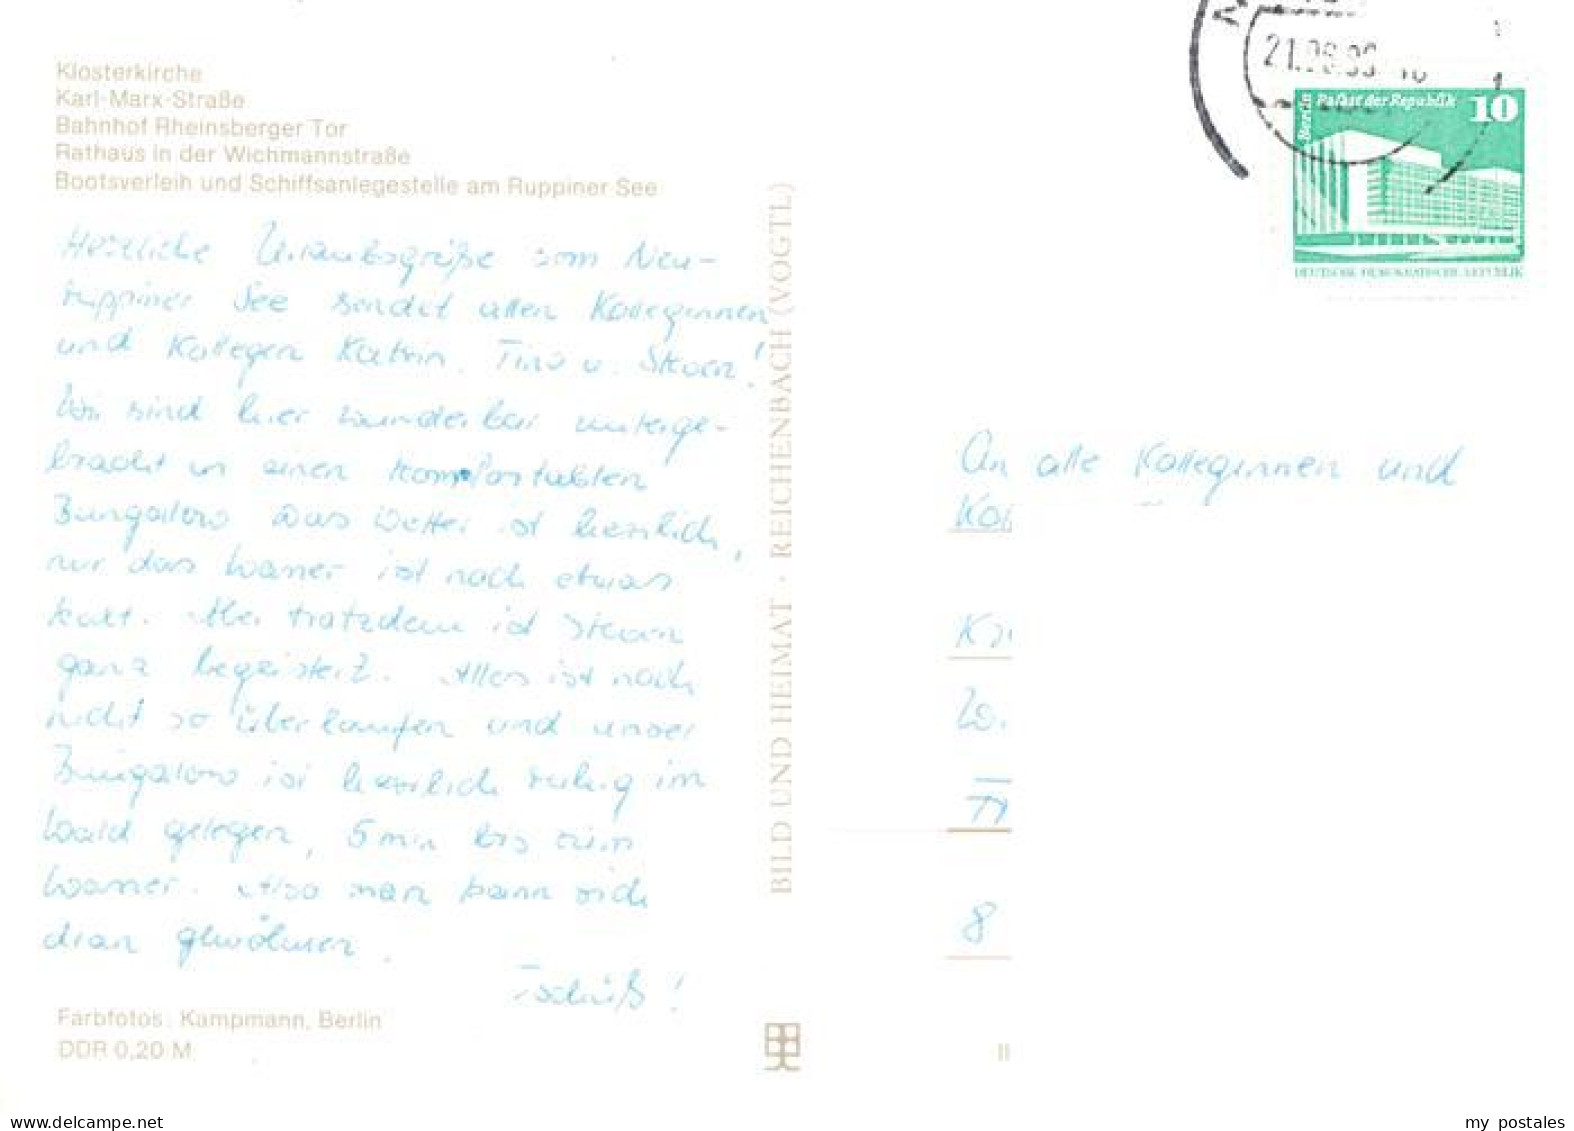 Klosterkirche
Karl-Marx-Straße
Bahnhof Rheinsberger Tor
Rathaus in der Wichmannstraße
Bootsverleih und Schiffsanlegestelle am Ruppiner See
Herzliche Urlaubsgrüße vom Neu-
ruppiner See sendet allen Kolleginnen
und Kollegen Katrin, Tino u. Steven!
Wir sind hier wunderbar unterge-
bracht in einen komfortablen
Bungalow Das Wetter ist herrlich,
nur das Wasser ist noch etwas
kalt. Aber trotzdem ist Steven
ganz begeistert. Alles ist noch
nicht so überlaufen und unser
Bungalow ist herrlich ruhig im
Wald gelegen, 5 min bis zum
Wasser. Also man kann sich
dran gewöhnen.
Tschüß!
Farbfotos: Kampmann, Berlin
DDR 0,20 M
BILD UND HEIMAT · REICHENBACH (VOGTL)
Berlin Palast der Republik 10
DEUTSCHE DEMOKRATISCHE REPUBLIK
An alle Kolleginnen und
W.
8
II
www.delcampe.net
my postales